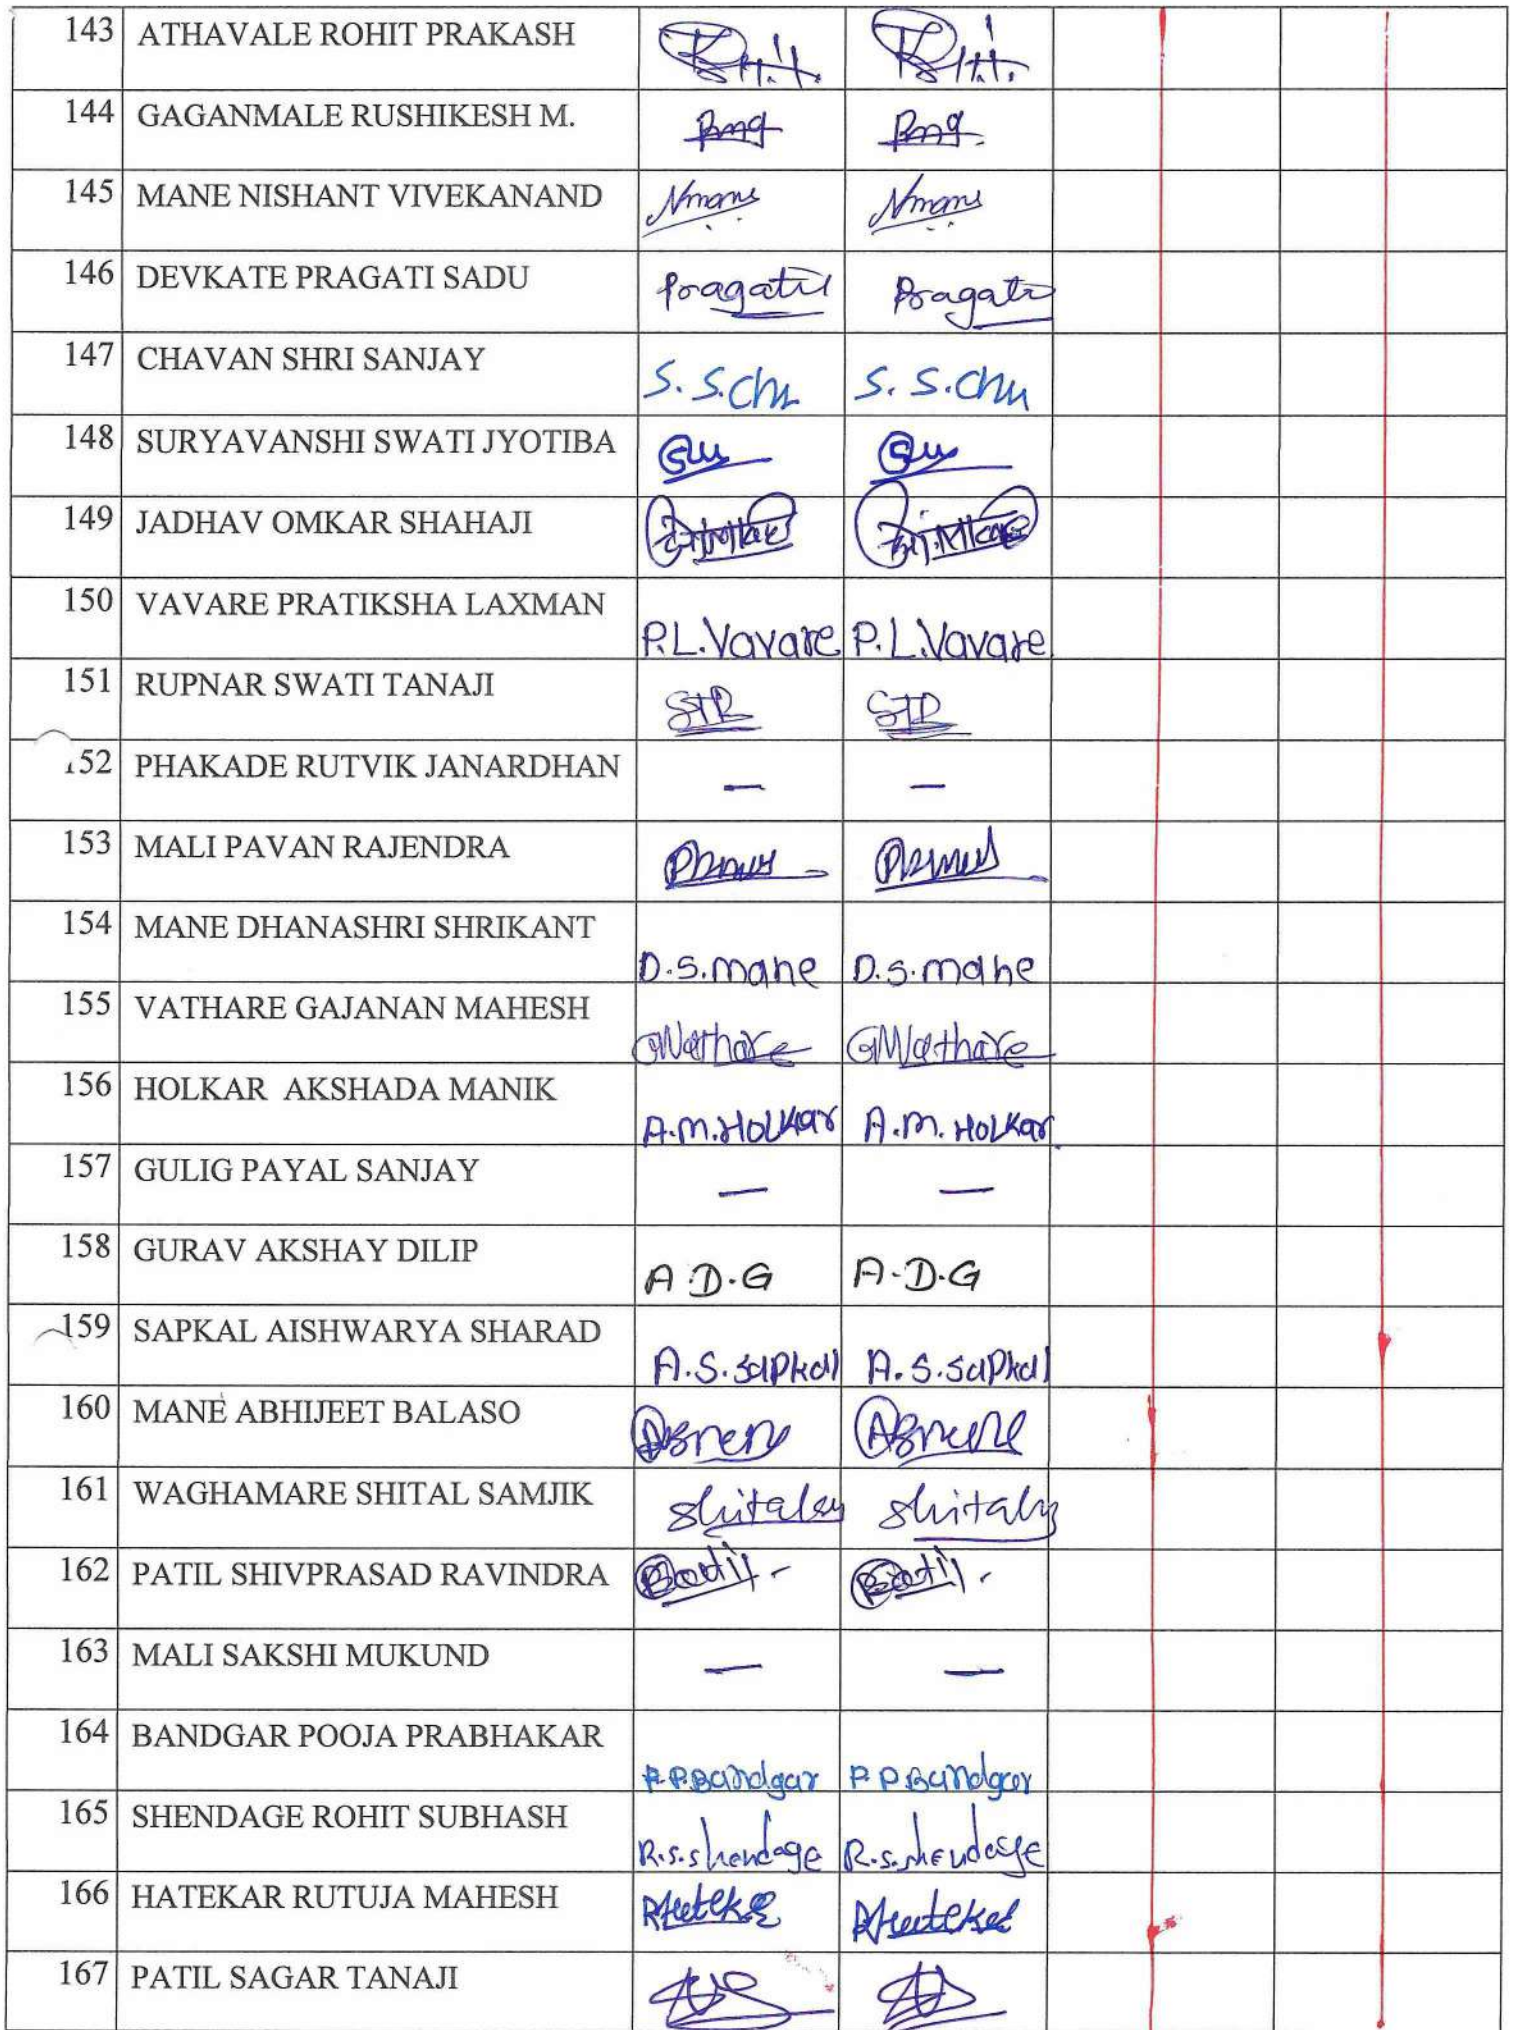 143 ATHAVALE ROHIT PRAKASH
144 GAGANMALE RUSHIKESH M.
145 MANE NISHANT VIVEKANAND Nmane Nmane
146 DEVKATE PRAGATI SADU Pragati Pragati
147 CHAVAN SHRI SANJAY S. S. S. S.
148 SURYAVANSHI SWATI JYOTIBA
149 JADHAV OMKAR SHAHAJI
150 VAVARE PRATIKSHA LAXMAN P.L.Vavare P.L.Vavare
151 RUPNAR SWATI TANAJI STR STR
152 PHAKADE RUTVIK JANARDHAN — —
153 MALI PAVAN RAJENDRA
154 MANE DHANASHRI SHRIKANT D.S.mane D.S.mane
155 VATHARE GAJANAN MAHESH GMVathare GMVathare
156 HOLKAR AKSHADA MANIK A.M.Holkar A.M.Holkar
157 GULIG PAYAL SANJAY — —
158 GURAV AKSHAY DILIP A.D.G A.D.G
159 SAPKAL AISHWARYA SHARAD A.S.Sapkal A.S.Sapkal
160 MANE ABHIJEET BALASO
161 WAGHAMARE SHITAL SAMJIK
162 PATIL SHIVPRASAD RAVINDRA
163 MALI SAKSHI MUKUND — —
164 BANDGAR POOJA PRABHAKAR P.P.Bandgar P P Bandgar
165 SHENDAGE ROHIT SUBHASH R.S.Shendage R.S.Shendage
166 HATEKAR RUTUJA MAHESH
167 PATIL SAGAR TANAJI